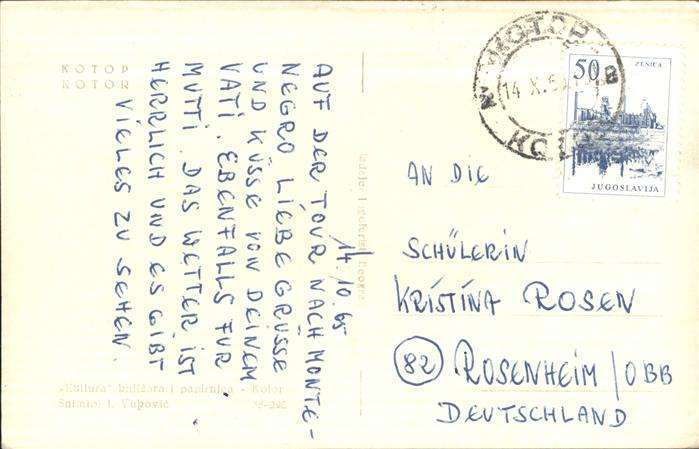 КОТОР
KOTOR
14.10.65
AUF DER TOUR NACH MONTE-
NEGRO LIEBE GRÜSSE
UND KÜSSE VON DEINEM
VATI. EBENFALLS FÜR
MUTTI. DAS WETTER IST
HERRLICH UND ES GIBT
VIELES ZU SEHEN.
„Kultura" knjižara i papirnica - Kotor
Snimio: I. Vuković
КОТОР
14. X.
KOTOR
50
ZENICA
JUGOSLAVIJA
AN DIE
SCHÜLERIN
KRISTINA ROSEN
82 ROSENHEIM / OBB
DEUTSCHLAND